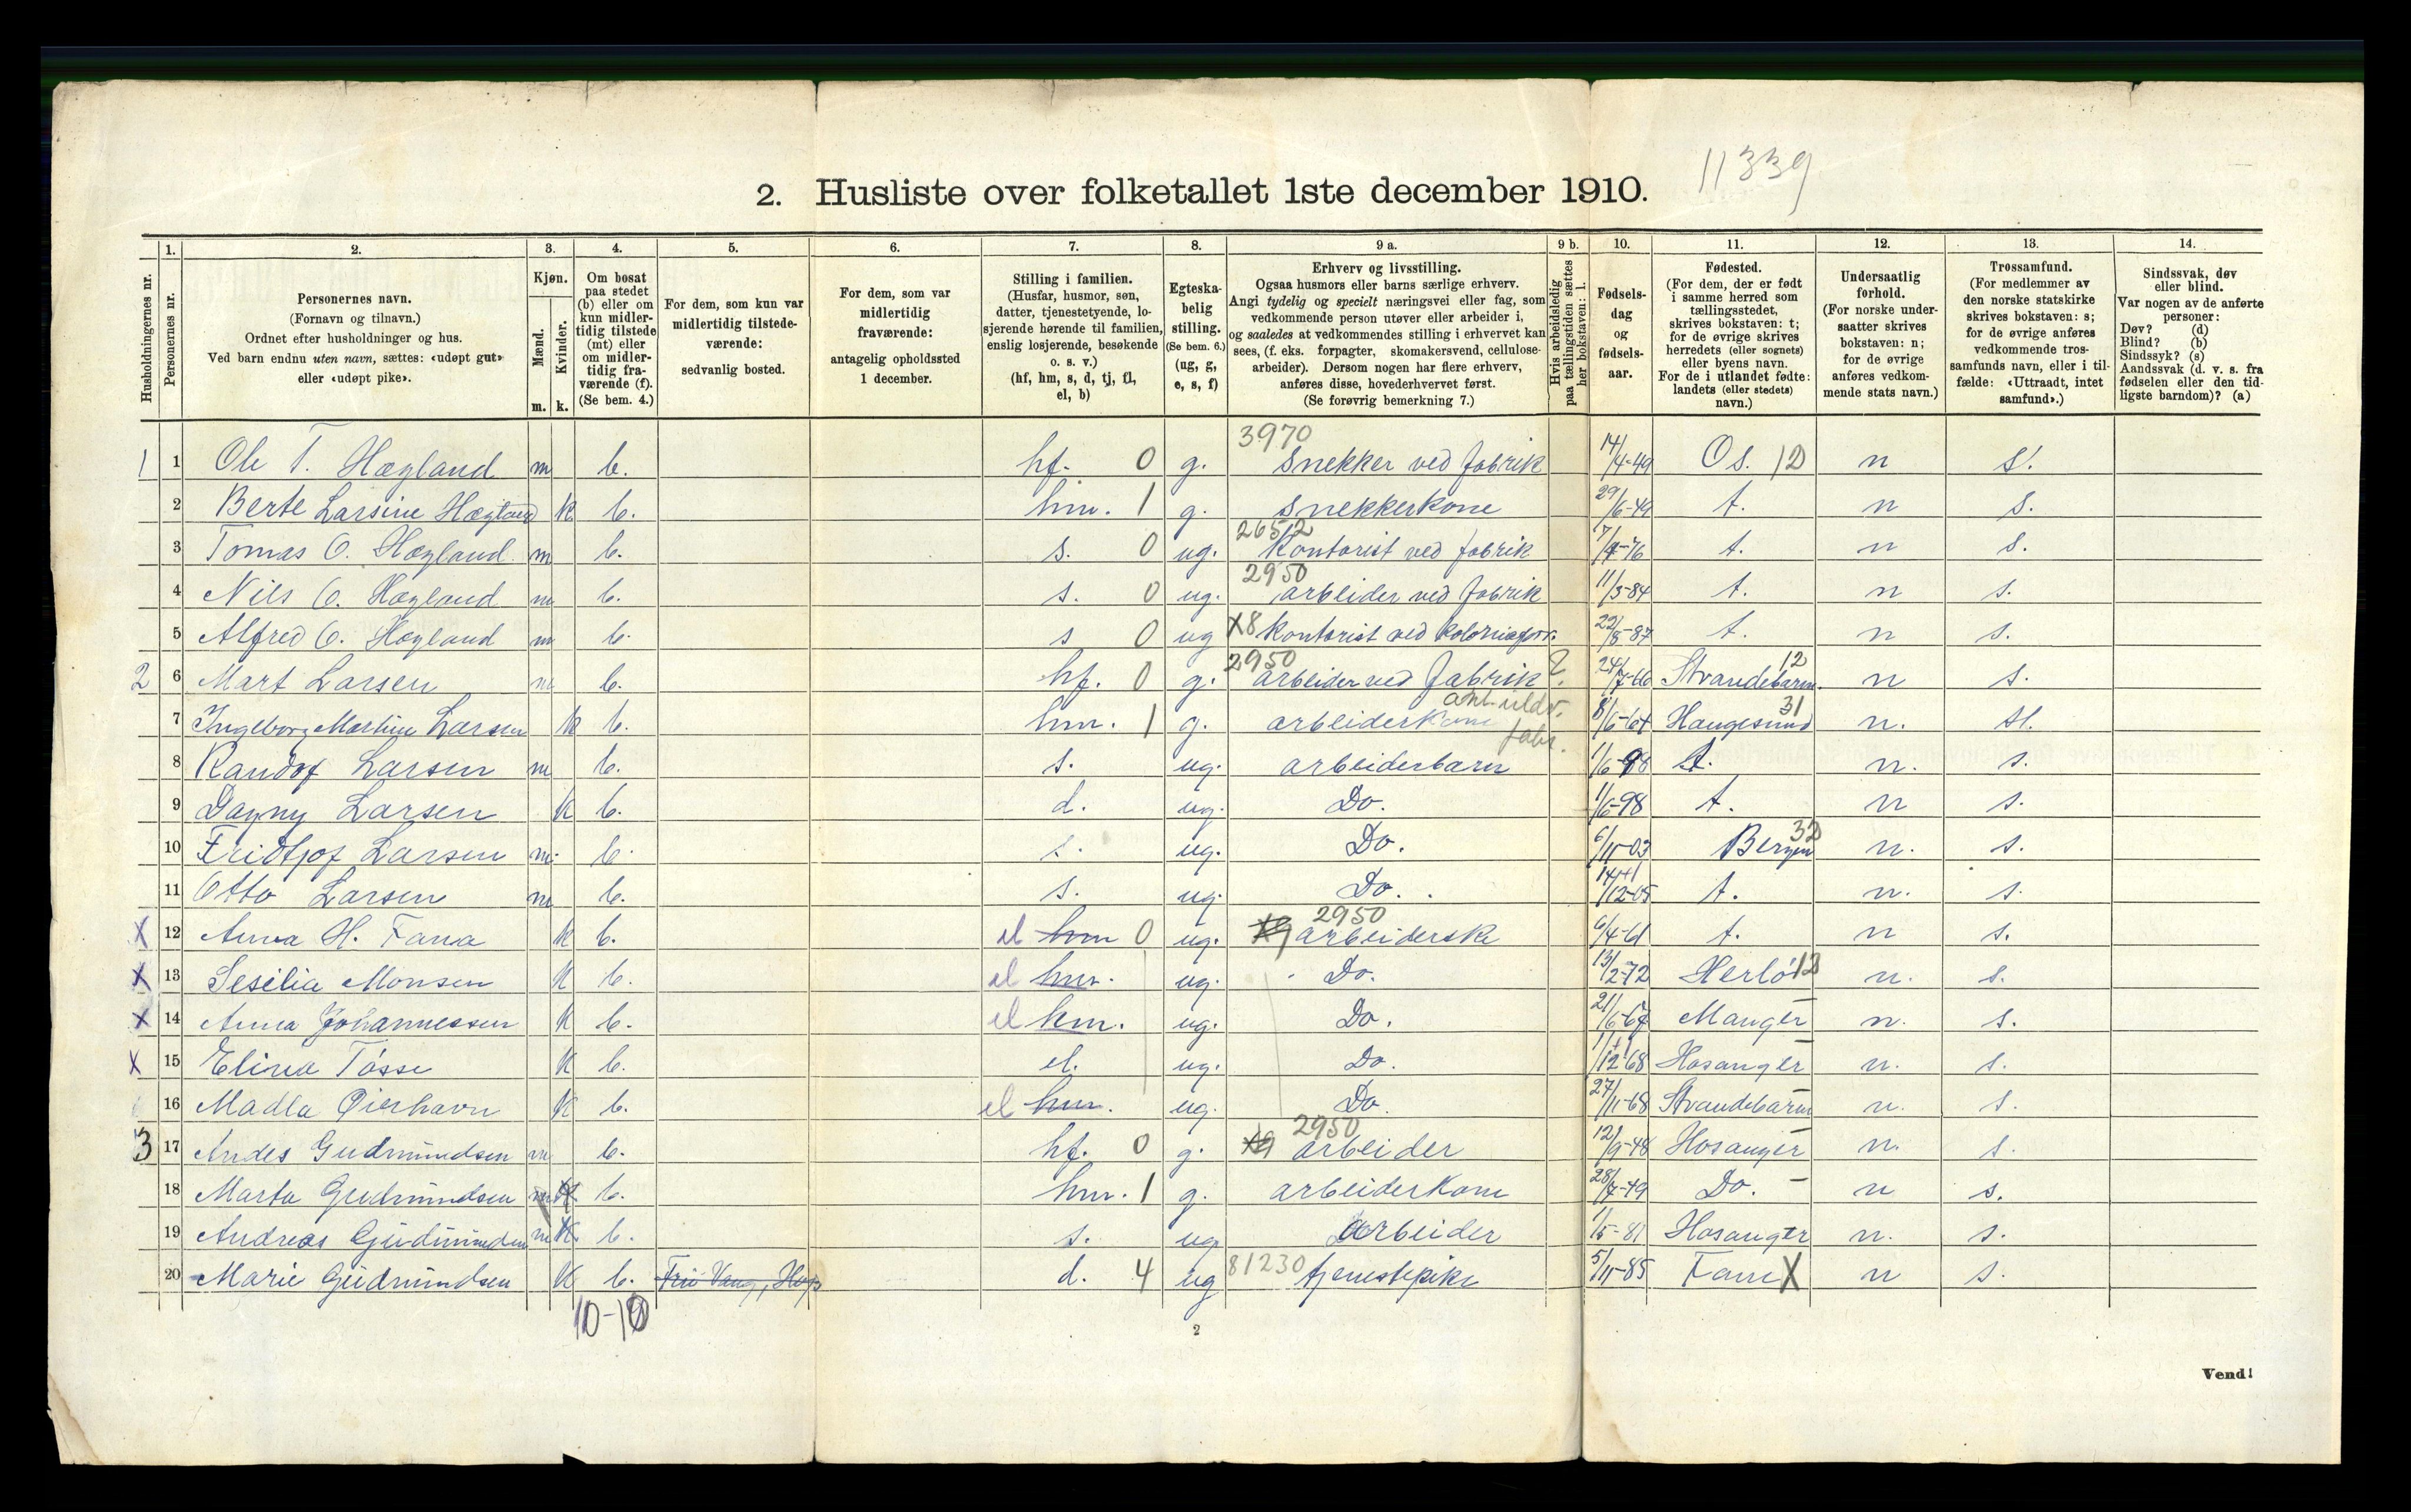 11339
2. Husliste over folketallet 1ste december 1910.
Husholdningernes nr.
1. Personernes nr.
2. Personernes navn. (Fornavn og tilnavn.) Ordnet efter husholdninger og hus. Ved barn endnu uten navn, sættes: «udøpt gut» eller «udøpt pike».
3. Kjøn. Mænd. m. Kvinder. k.
4. Om bosat paa stedet (b) eller om kun midler-tidig tilstede (mt) eller om midler-tidig fra-værende (f). (Se bem. 4.)
5. For dem, som kun var midlertidig tilstede-værende: sedvanlig bosted.
6. For dem, som var midlertidig fraværende: antagelig opholdssted 1 december.
7. Stilling i familien. (Husfar, husmor, søn, datter, tjenestetyende, lo-sjerende hørende til familien, enslig losjerende, besøkende o. s. v.) (hf, hm, s, d, tj, fl, el, b)
8. Egteska-belig stilling. (Se bem. 6.) (ug, g, e, s, f)
9 a. Erhverv og livsstilling. Ogsaa husmors eller barns særlige erhverv. Angi tydelig og specielt næringsvei eller fag, som vedkommende person utøver eller arbeider i, og saaledes at vedkommendes stilling i erhvervet kan sees, (f. eks. forpagter, skomakersvend, cellulose-arbeider). Dersom nogen har flere erhverv, anføres disse, hovederhvervet først. (Se forøvrig bemerkning 7.)
9 b. Hvis arbeidsledig paa tællingstiden sættes her bokstaven: l.
10. Fødsels-dag og fødsels-aar.
11. Fødested. (For dem, der er født i samme herred som tællingsstedet, skrives bokstaven: t; for de øvrige skrives herredets (eller sognets) eller byens navn. For de i utlandet fødte: landets (eller stedets) navn.)
12. Undersaatlig forhold. (For norske under-saatter skrives bokstaven: n; for de øvrige anføres vedkom-mende stats navn.)
13. Trossamfund. (For medlemmer av den norske statskirke skrives bokstaven: s; for de øvrige anføres vedkommende tros-samfunds navn, eller i til-fælde: «Uttraadt, intet samfund».)
14. Sindssvak, døv eller blind. Var nogen av de anførte personer: Døv? (d) Blind? (b) Sindssyk? (s) Aandssvak (d. v. s. fra fødselen eller den tid-ligste barndom)? (a)
1 1 Ole T. Hægland m b. hf. 0 g. 3970 Snekker ved fabrik 14/4-49 Os. 12 n s.
2 Berte Larsine Hægland k b. hm. 1 g. snekkerkone 29/6-49 t. n s.
3 Tomas O. Hægland m b. s. 0 ug. 26512 Kontorist ved fabrik t. n s.
4 Nils O. Hægland m b. s. 0 ug. 2950 arbeider ved fabrik 11/3-84 t. n s.
5 Alfred O. Hægland m b. s 0 ug X8 Kontorist ved t. n s.
2 6 Mart Larsen m b. hf. 0 g. 2950 arbeider ved fabrik 24/7-66 Strandebarm 12 n s.
7 Ingeborg Martine Larsen k b. hm. 1 g. arbeiderkone 8/6-64 Haugesund 31 n. s.
8 Randof Larsen m b. s. ug. arbeiderbarn 1/6-98 t. n. s.
9 Dagny Larsen k b. d. ug. Do. 1/6-98 t. n s.
10 Fridtjof Larsen m. b. s. ug. Do. 6/11-03 Bergen 32 n. s.
11 Otto Larsen m b. s. ug. Do. 14/12-05 t. n. s.
X 12 Anna H. Fana k b. el hm 0 ug. 2950 arbeiderske 6/4-61 t. n s.
X 13 Sesilia Monsen k b. el hm. ug. Do. 13/2-72 Herlö 12 n. s.
X 14 Anna Johannessen k b. el hm. ug. Do. 21/6-67 Manger n. s.
X 15 Elina Tösse k b. el. ug. Do. 1/12-68 Hosanger n. s.
16 Madla Øierhavn k b. el hm. ug. Do. 27/11-68 Strandebarm n. s.
3 17 Andes Gudmundsen m b. hf. 0 g. 2950 arbeider 12/9-48 Hosanger n. s.
18 Marta Gudmundsen k b. hm. 1 g. arbeiderkone 28/7-49 Do. n s.
19 Andreas Gudmundsen m k b. s. ug arbeider 1/5-81 Hosanger n. s.
20 Marie Gudmundsen k b. d. 4 ug 81230 tjenestepike 5/11-85 Fane X n s.
10-10
2
Vend!